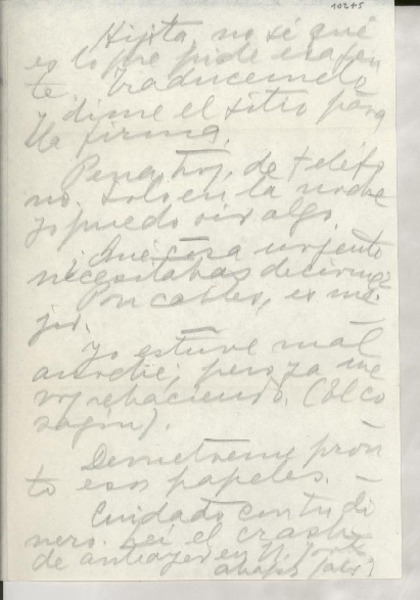 10245
Hijita, no sé qué
es lo que pide esa gen
te. Tradúcemelo
y dime el sitio para
la firma.
Pena hoy, de teléfo
no. Solo en la noche
yo puedo oir algo.
¿Qué cosa urgente
necesitabas decirme?
Por cables, es me-
jor.
Yo estuve mal
anoche; pero ya me
voy rehaciendo. (El co
razón).
Devuélveme pron
to esos papeles. —
Cuidado con tu di
nero. Leí el crash
de anteayer en N. York